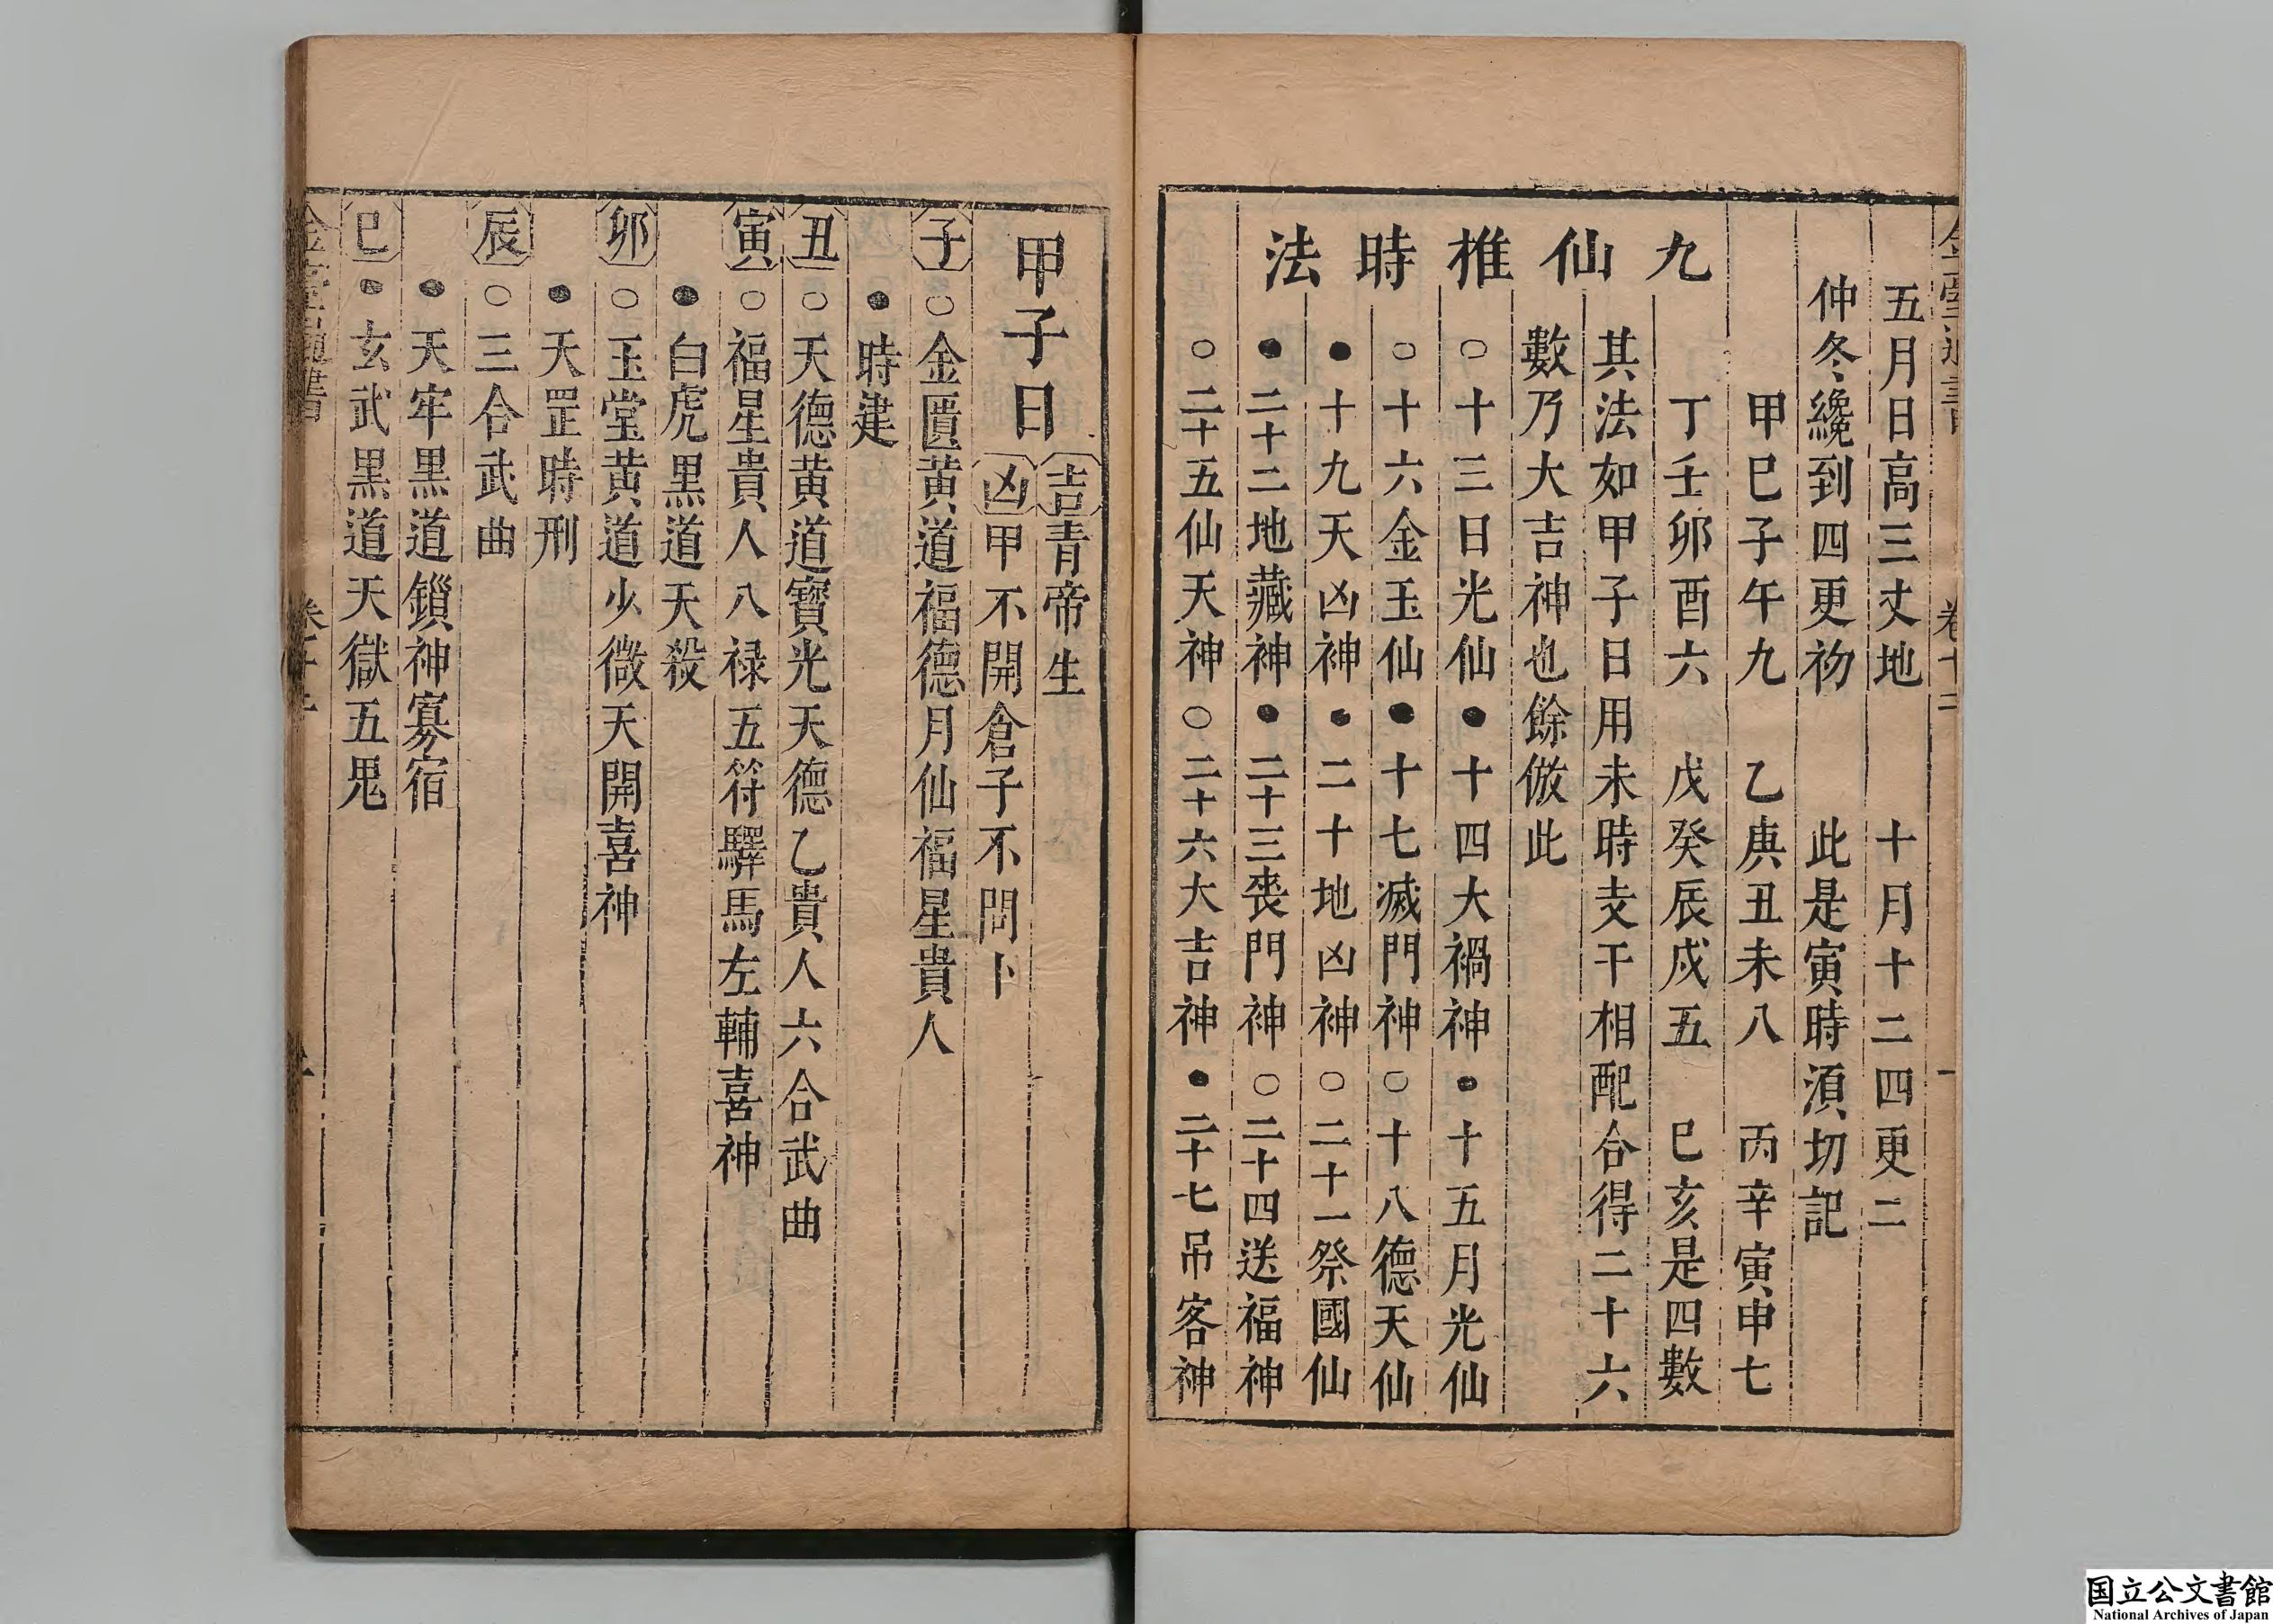 五月日高三丈地 十月十二四更二
仲冬纔到四更初 此是寅時須切記
甲巳子午九 乙庚丑未八 丙辛寅申七
丁壬卯酉六 戊癸辰戌五 巳亥是四數
九仙推時法
其法如甲子日用未時支干相配合得二十六
數乃大吉神也餘倣此
○十三日光仙●十四大禍神●十五月光仙
○十六金玉仙●十七滅門神○十八德天仙
●十九天凶神●二十地凶神○二十一祭國仙
●二十二地藏神●二十三丧門神○二十四送福神
○二十五仙天神○二十六大吉神●二十七吊客神
甲子日
吉青帝生
凶甲不開倉子不問卜
子○金匱黄道福德月仙福星貴人
●時建
丑○天德黄道寶光天德乙貴人六合武曲
寅○福星貴人八禄五符驛馬左輔喜神
●白虎黑道天殺
卯○玉堂黄道少微天開喜神
●天罡時刑
辰○三合武曲
●天牢黑道鎖神寡宿
巳●玄武黑道天獄五鬼
国立公文書館
National Archives of Japan